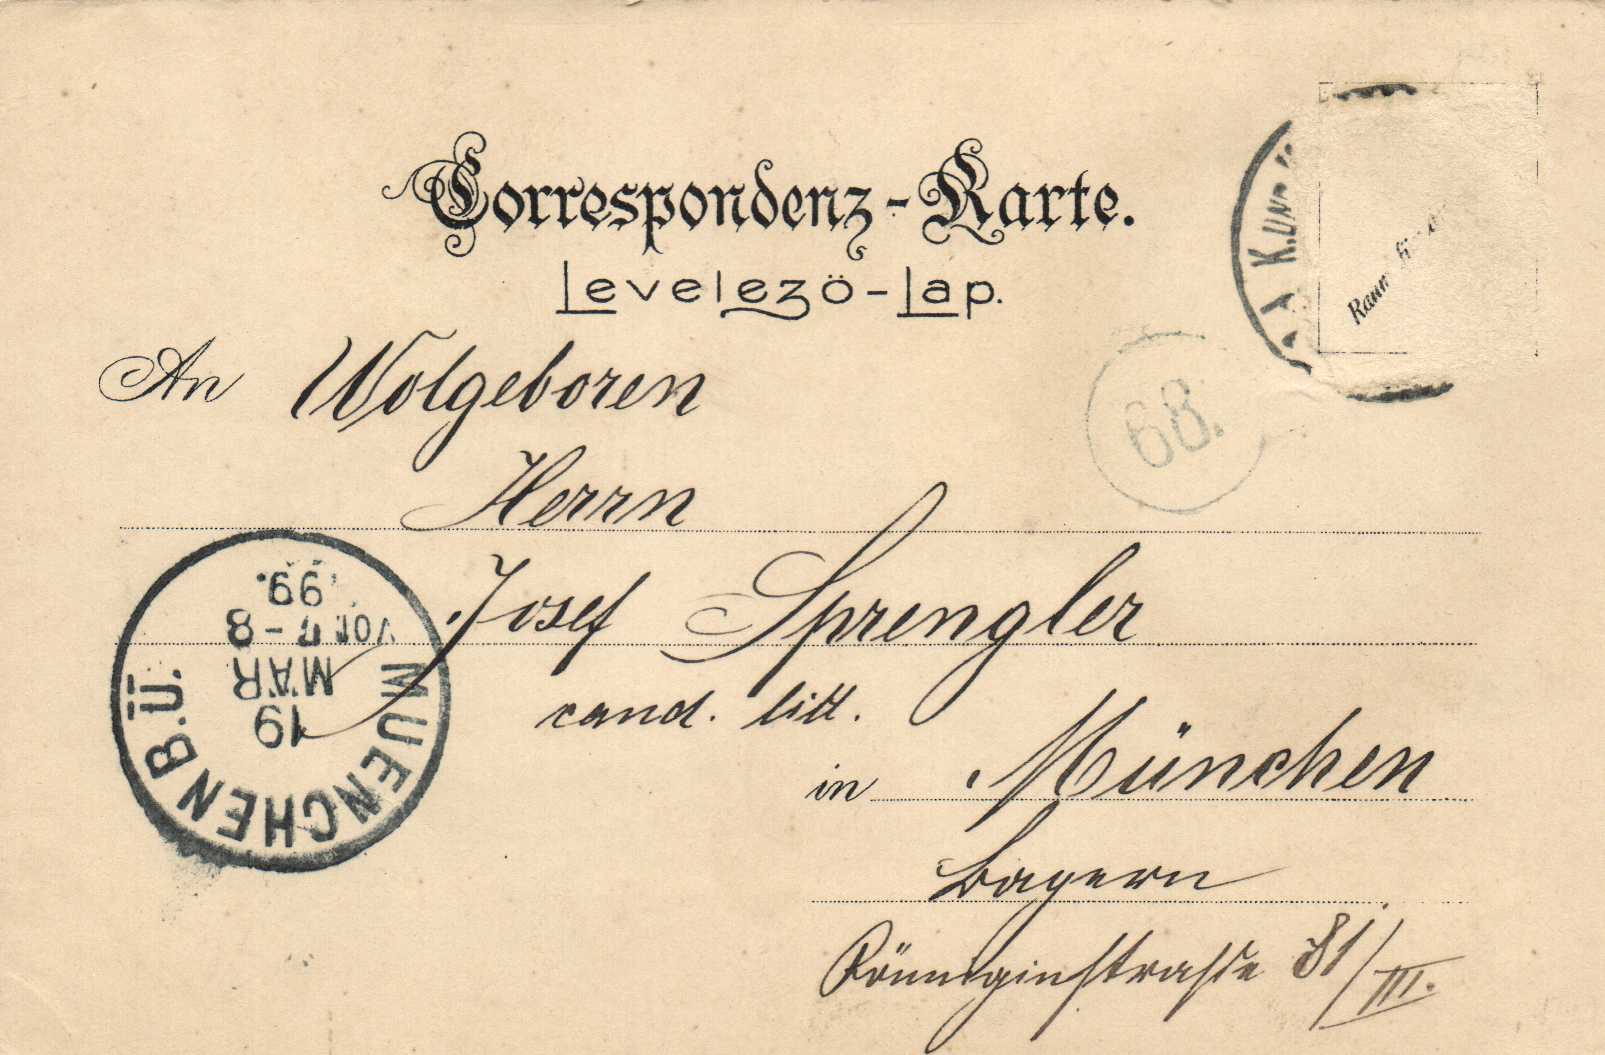 Correspondenz-Karte.
Levelező-Lap.
K.UND
Raum
68.
An Wolgeboren
Herrn
Josef Sprengler
cand. litt.
in München
Bayern
Königinstrasse 81/III.
MUENCHEN B.Ü.
19
MÄR
VOR 7-8
99.